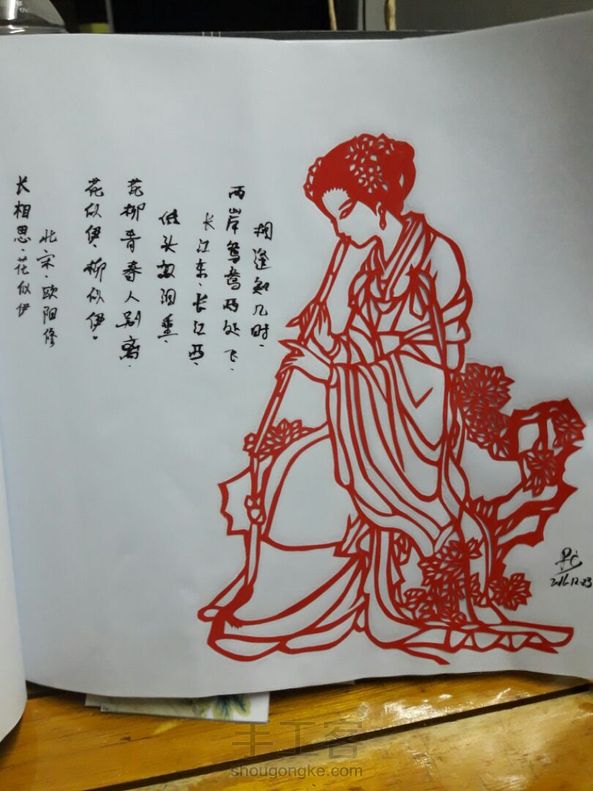 长相思·花似伊
北宋·欧阳修
花似伊,柳似伊。
花柳青春人别离,
低头双泪垂。
长江东,长江西,
两岸鸳鸯两处飞,
相逢知几时。
2016.12.23
手工客
shougongke.com